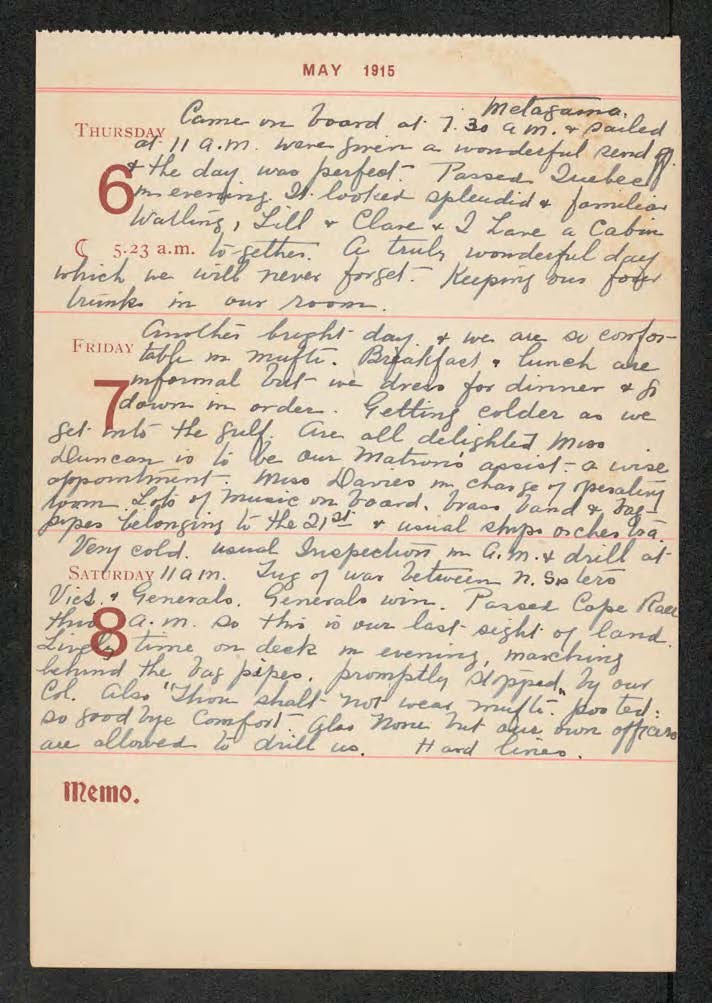 MAY 1915
Metagama.
Came on board at 7.30 a m. & sailed
THURSDAY
at 11 a.m. were given a wonderful send off.
6
& the day was perfect. Passed Quebec
in evening. It looked splendid & familiar
Watling, Lill & Clare & I have a Cabin
☾ 5.23 a.m. to-gether. A truly wonderful day
which we will never forget. Keeping our four
trunks in our room.
Another bright day & we are so comfor-
FRIDAY
table in mufti. Breakfast & lunch are
7
informal but we dress for dinner & go
down in order. Getting colder as we
get into the gulf. Are all delighted Miss
Duncan is to be our Matron's assist - a wise
appointment. Miss Davies in charge of operating
room. Lots of music on board. brass band & bag-
pipes belonging to the 21st & usual ships orchestra.
Very cold. usual Inspection in a.m. & drill at
SATURDAY 11 a m. Tug of war between N. Sisters
Vics. & Generals. Generals win. Passed Cape Race
8
this a.m. so this is our last sight of land.
Lively time on deck in evening, marching
behind the bag pipes, promptly stopped, by our
Col. Also "Thou shalt not wear mufti. posted.
so good bye Comfort. Also None but our own officers
are allowed to drill us. Hard lines.
Memo.